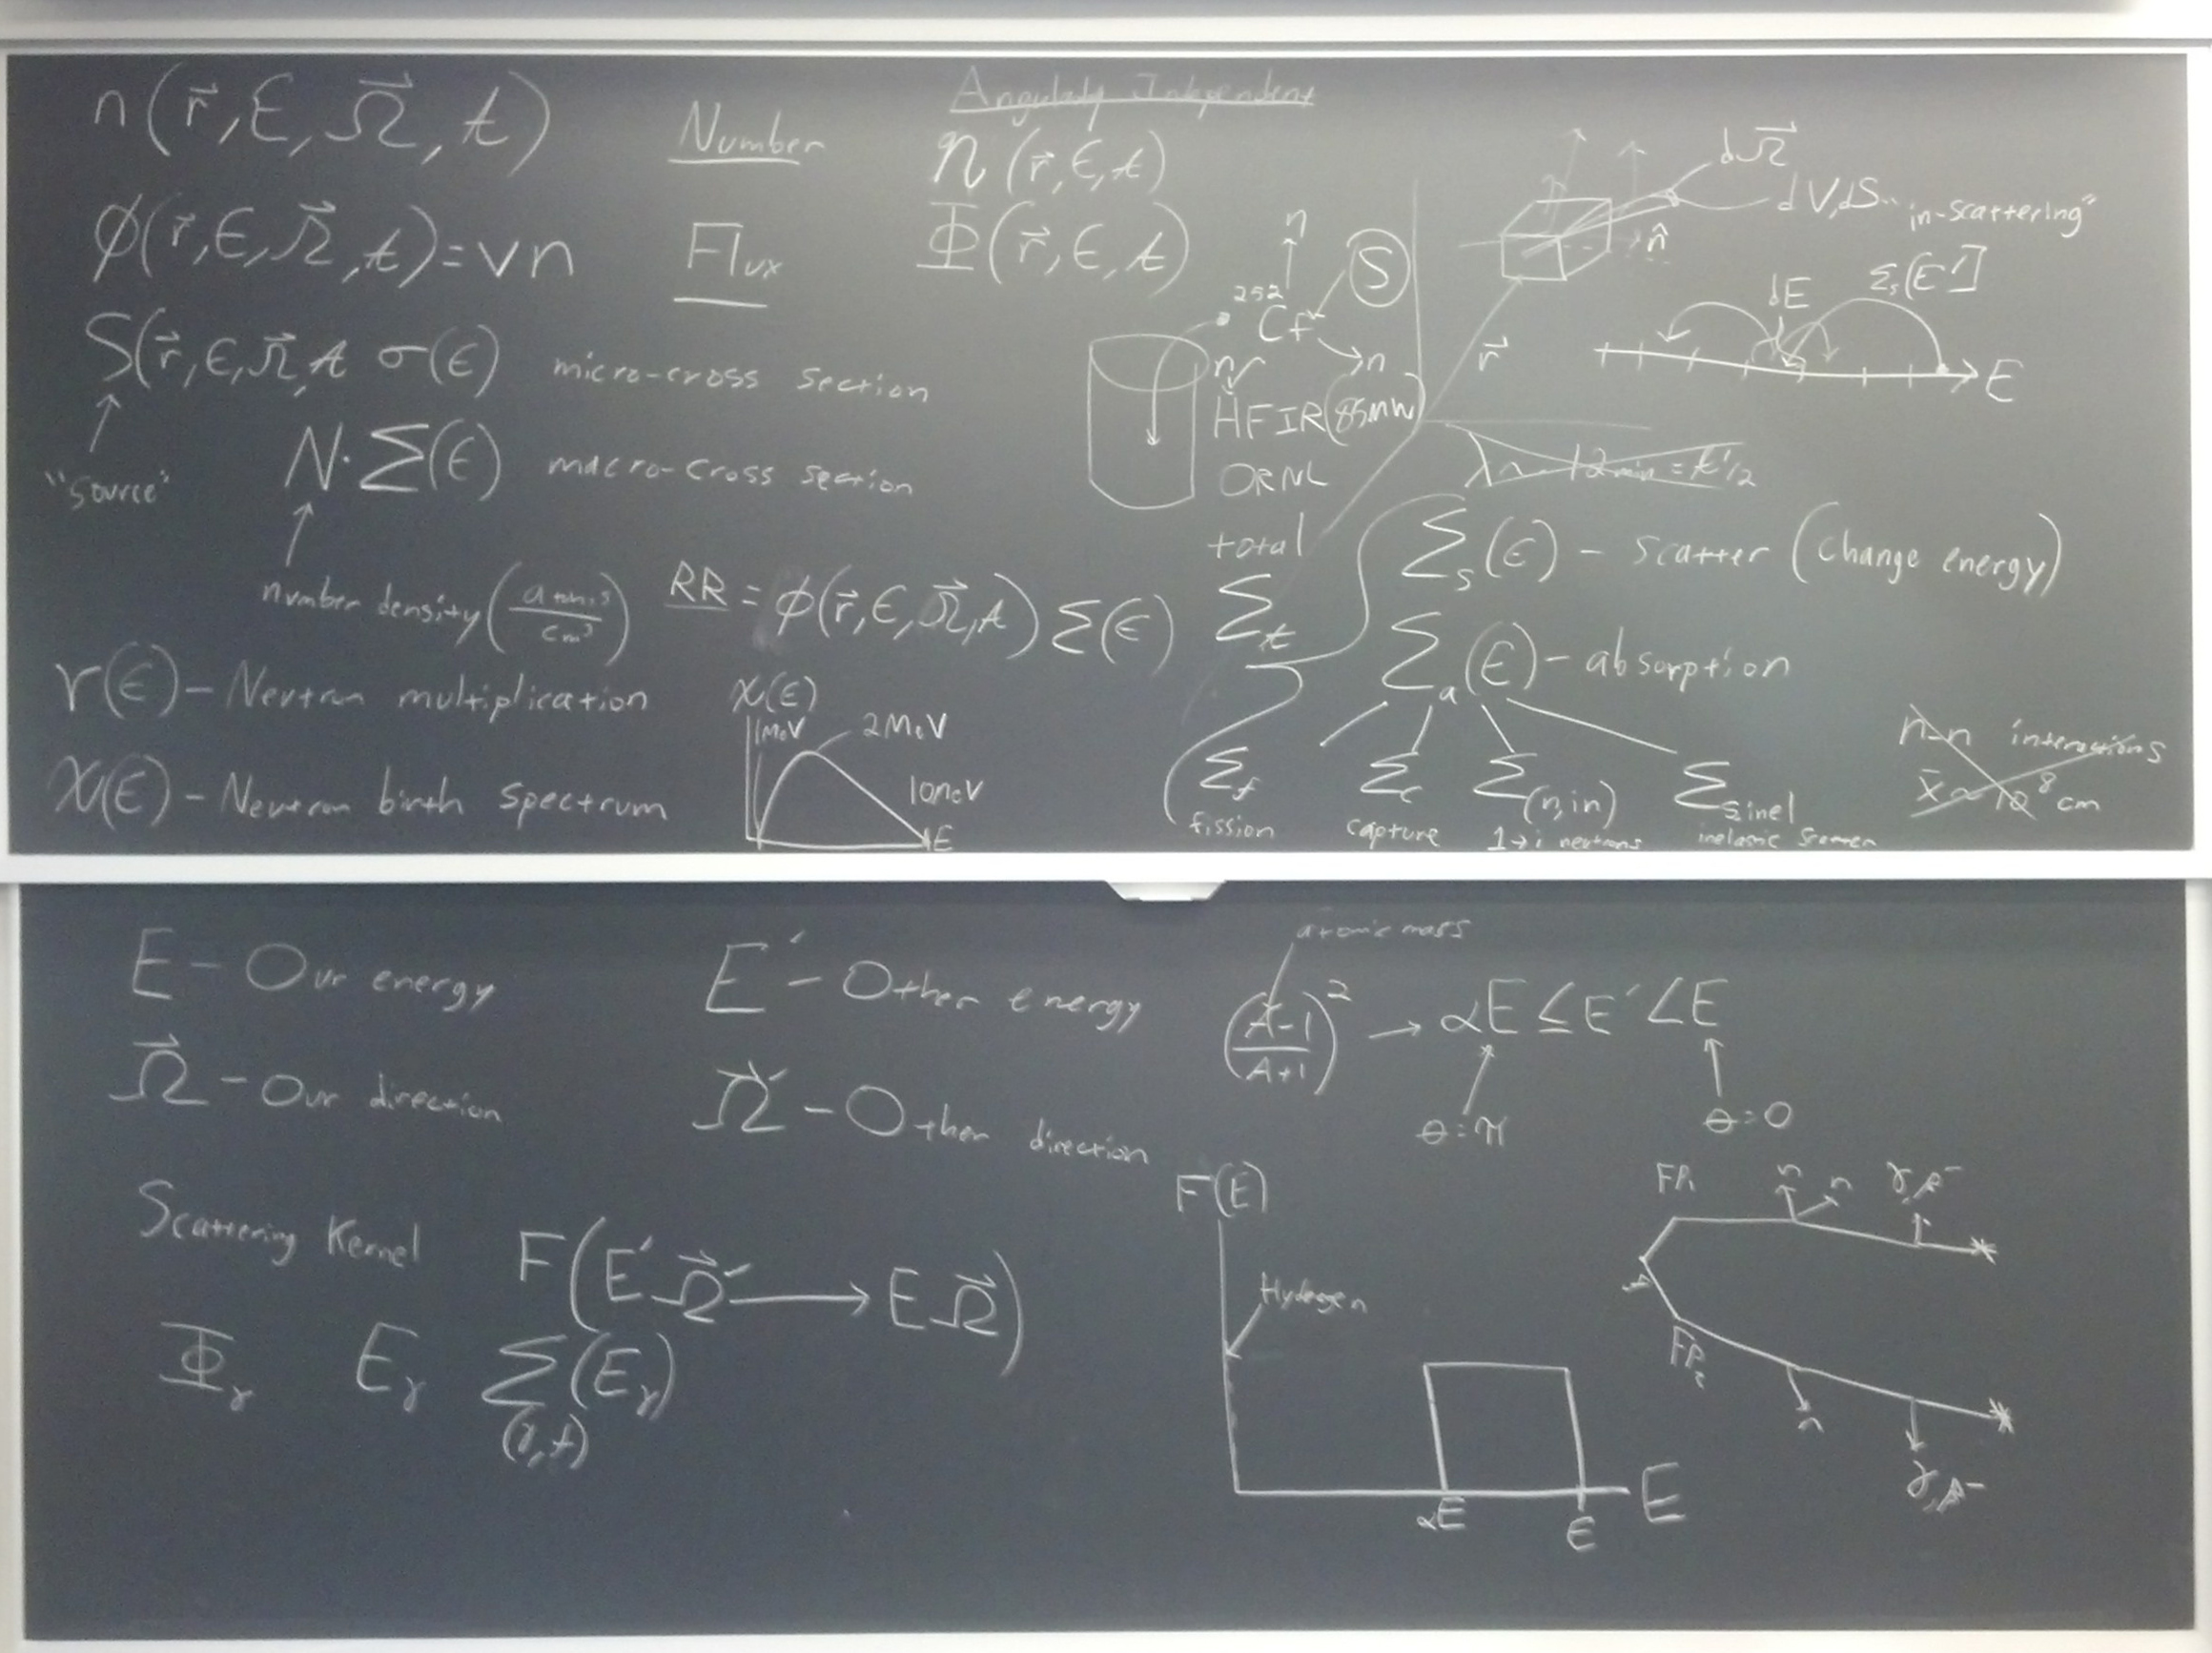 n(r⃗,E,Ω⃗,t) Number
ϕ(r⃗,E,Ω⃗,t)=vn Flux
S(r⃗,E,Ω⃗,t σ(E) micro-cross section
"source"
N·Σ(E) macro-cross section
number density (atoms/cm³)
RR = ϕ(r⃗,E,Ω⃗,t) Σ(E)
ν(E) – Neutron multiplication
χ(E) – Neutron birth spectrum
χ(E)
1MeV
2MeV
10MeV
E
Angularly Independent
n(r⃗,E,t)
Φ(r⃗,E,t)
n
S
²⁵²Cf
n
n
HFIR(85MW)
ORNL
dΩ⃗
dV,dS
n̂
r⃗
"in-scattering"
dE
Σs[E']
E
12min = t1/2
total
Σt
Σs(E) – scatter (change energy)
Σa(E) – absorption
Σf
fission
Σc
capture
Σ(n,in)
1→i neutrons
Σs,inel
inelastic scatter
n-n interactions
x̄~10⁸cm
E – Our energy
E′ – Other energy
Ω⃗ – Our direction
Ω⃗′ – Other direction
Scattering Kernel F(E′Ω⃗′→EΩ⃗)
Φγ Eγ Σ(γ,f)(Eγ)
atomic mass
((A-1)/(A+1))² → αE≤E′<E
θ=π
θ=0
F(E)
Hydrogen
αE
E
E
FP₁
n
n
γ,β⁻
FP₂
n
γ,β⁻